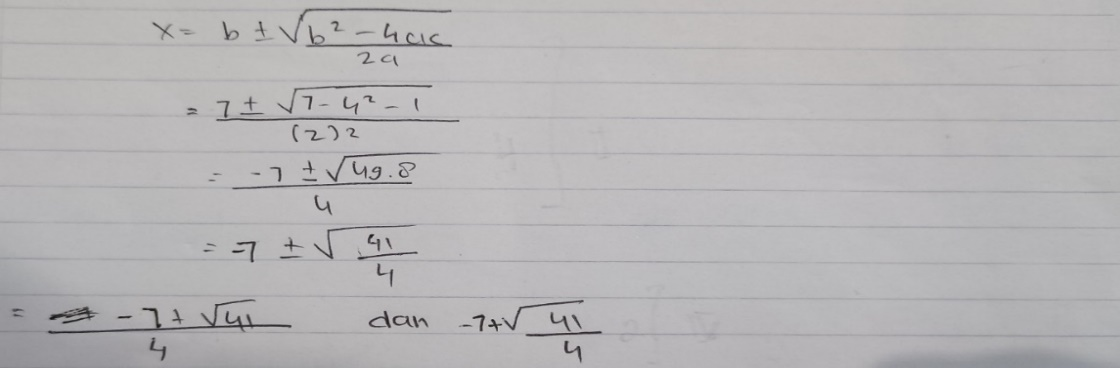 x = b ± √b² - 4ac / 2a
= 7 ± √7 - 4² - 1 / (2)2
= -7 ± √49.8 / 4
= -7 ± √41/4
= -7 + √41 / 4 dan -7+√41/4